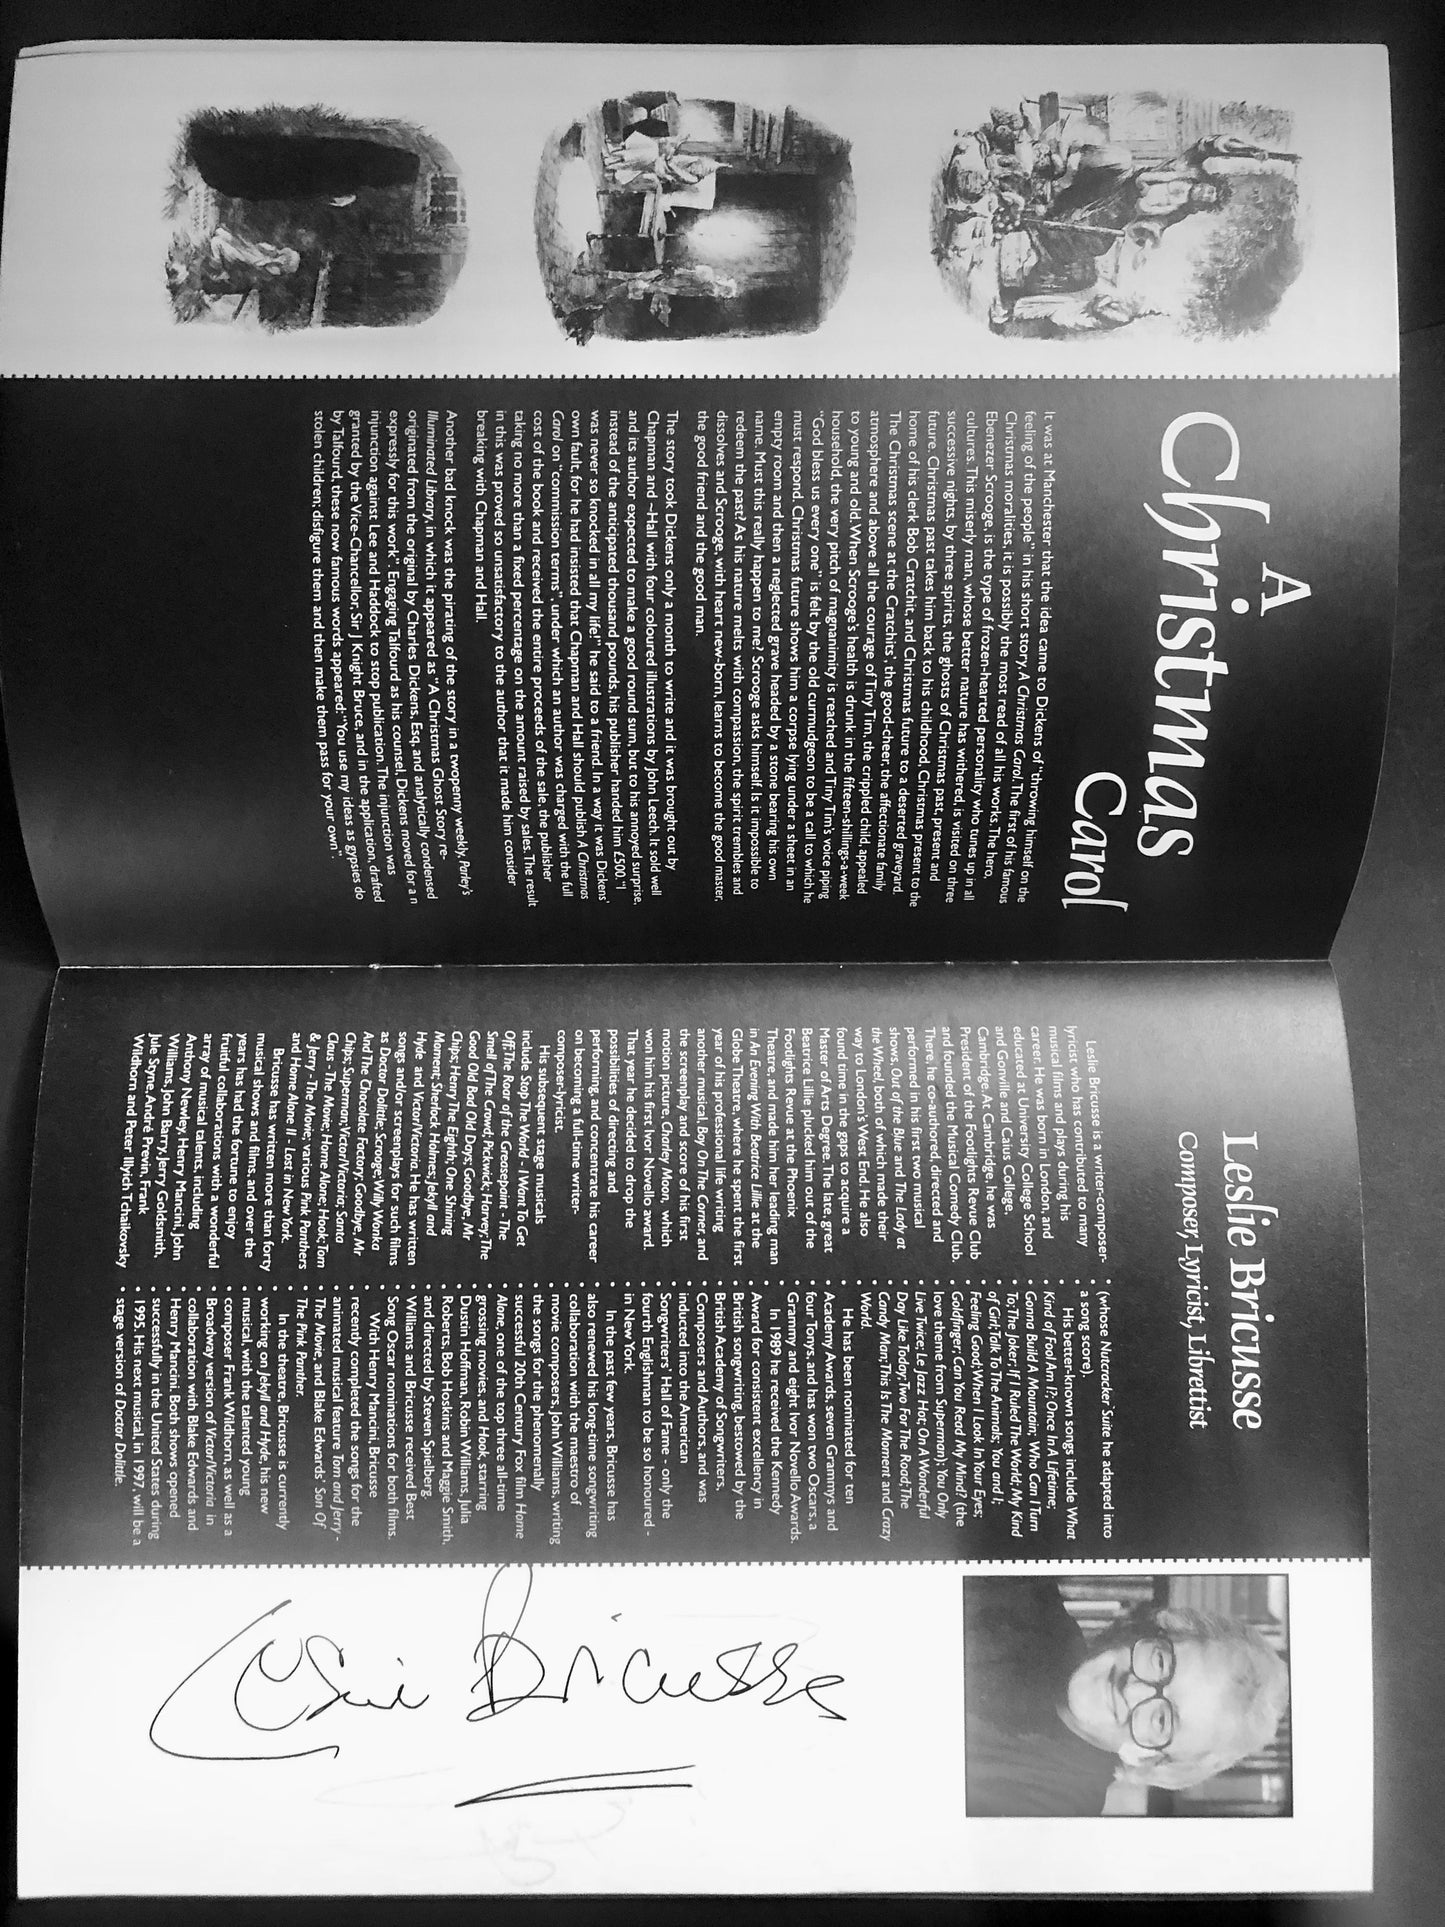 A
Christmas
Carol
It was at Manchester that the idea came to Dickens of "throwing himself on the
feeling of the people" in his short story, A Christmas Carol. The first of his famous
Christmas moralities, it is possibly the most read of all his works. The hero,
Ebenezer Scrooge, is the type of frozen-hearted personality who tunes up in all
cultures. This miserly man, whose better nature has withered, is visited on three
successive nights, by three spirits, the ghosts of Christmas past, present and
future. Christmas past takes him back to his childhood, Christmas present to the
home of his clerk Bob Cratchit, and Christmas future to a deserted graveyard.
The Christmas scene at the Cratchits', the good-cheer, the affectionate family
atmosphere and above all the courage of Tiny Tim, the crippled child, appealed
to young and old. When Scrooge's health is drunk in the fifteen-shillings-a-week
household, the very pitch of magnanimity is reached and Tiny Tim's voice piping
"God bless us every one" is felt by the old curmudgeon to be a call to which he
must respond. Christmas future shows him a corpse lying under a sheet in an
empty room and then a neglected grave headed by a stone bearing his own
name. Must this really happen to me? Scrooge asks himself. Is it impossible to
redeem the past? As his nature melts with compassion, the spirit trembles and
dissolves and Scrooge, with heart new-born, learns to become the good master,
the good friend and the good man.
The story took Dickens only a month to write and it was brought out by
Chapman and ~Hall with four coloured illustrations by John Leech. It sold well
and its author expected to make a good round sum, but to his annoyed surprise,
instead of the anticipated thousand pounds, his publisher handed him £500. "I
was never so knocked in all my life!" he said to a friend. In a way it was Dickens'
own fault, for he had insisted that Chapman and Hall should publish A Christmas
Carol on "commission terms", under which an author was charged with the full
cost of the book and received the entire proceeds of the sale, the publisher
taking no more than a fixed percentage on the amount raised by sales. The result
in this was proved so unsatisfactory to the author that it made him consider
breaking with Chapman and Hall.
Another bad knock was the pirating of the story in a twopenny weekly, Parley's
Illuminated Library, in which it appeared as "A Christmas Ghost Story re-
originated from the original by Charles Dickens, Esq, and analytically condensed
expressly for this work". Engaging Talfourd as his counsel, Dickens moved for a n
injunction against Lee and Haddock to stop publication. The injunction was
granted by the Vice-Chancellor, Sir J Knight Bruce, and in the application, drafted
by Talfourd, these now famous words appeared: "You use my ideas as gypsies do
stolen children; disfigure them and then make them pass for your own".
Leslie Bricusse
Composer, Lyricist, Librettist
Leslie Bricusse is a writer-composer-
lyricist who has contributed to many
musical films and plays during his
career. He was born in London, and
educated at University College School
and Gonville and Caius College,
Cambridge. At Cambridge, he was
President of the Footlights Revue Club
and founded the Musical Comedy Club.
There, he co-authored, directed and
performed in his first two musical
shows, Out of the Blue and The Lady at
the Wheel, both of which made their
way to London's West End. He also
found time in the gaps to acquire a
Master of Arts Degree. The late, great
Beatrice Lillie plucked him out of the
Footlights Revue at the Phoenix
Theatre, and made him her leading man
in An Evening With Beatrice Lillie at the
Globe Theatre, where he spent the first
year of his professional life writing
another musical, Boy On The Corner, and
the screenplay and score of his first
motion picture, Charley Moon, which
won him his first Ivor Novello award.
That year he decided to drop the
possibilities of directing and
performing, and concentrate his career
on becoming a full-time writer-
composer-lyricist.
His subsequent stage musicals
include Stop The World - I Want To Get
Off; The Roar of the Greasepaint - The
Smell of The Crowd; Pickwick; Harvey; The
Good Old Bad Old Days; Goodbye, Mr
Chips; Henry The Eighth; One Shining
Moment; Sherlock Holmes; Jekyll and
Hyde and Victor/Victoria. He has written
songs and/or screenplays for such films
as Doctor Dolittle; Scrooge; Willy Wonka
And The Chocolate Factory; Goodbye, Mr
Chips; Superman; Victor/Victoria; Santa
Claus - The Movie; Home Alone; Hook; Tom
& Jerry - The Movie; various Pink Panthers
and Home Alone II - Lost in New York.
Bricusse has written more than forty
musical shows and films, and over the
years has had the fortune to enjoy
fruitful collaborations with a wonderful
array of musical talents, including
Anthony Newley, Henry Mancini, John
Williams, John Barry, Jerry Goldsmith,
Jule Styne, André Previn, Frank
Wildhorn and Peter Illyich Tchaikovsky
• (whose Nutcracker Suite he adapted into
• a song score).
• His better-known songs include What
• Kind of Fool Am I?; Once In A Lifetime;
• Gonna Build A Mountain; Who Can I Turn
• To; The Joker; If I Ruled The World; My Kind
• of Girl; Talk To The Animals; You and I;
• Feeling Good; When I Look In Your Eyes;
• Goldfinger; Can You Read My Mind? (the
• love theme from Superman); You Only
• Live Twice; Le Jazz Hot; On A Wonderful
• Day Like Today; Two For The Road; The
• Candy Man; This Is The Moment and Crazy
• World.
• He has been nominated for ten
• Academy Awards, seven Grammys and
• four Tonys, and has won two Oscars, a
• Grammy and eight Ivor Novello Awards.
• In 1989 he received the Kennedy
• Award for consistent excellency in
• British songwriting, bestowed by the
• British Academy of Songwriters,
• Composers and Authors, and was
• inducted into the American
• Songwriters' Hall of Fame - only the
• fourth Englishman to be so honoured -
• in New York.
• In the past few years, Bricusse has
• also renewed his long-time songwriting
• collaboration with the maestro of
• movie composers, John Williams, writing
• the songs for the phenomenally
• successful 20th Century Fox film Home
• Alone, one of the top three all-time
• grossing movies, and Hook, starring
• Dustin Hoffman, Robin Williams, Julia
• Roberts, Bob Hoskins and Maggie Smith,
• and directed by Steven Spielberg.
• Williams and Bricusse received Best
• Song Oscar nominations for both films.
• With Henry Mancini, Bricusse
• recently completed the songs for the
• animated musical feature Tom and Jerry -
• The Movie, and Blake Edwards' Son Of
• The Pink Panther.
• In the theatre, Bricusse is currently
• working on Jekyll and Hyde, his new
• musical, with the talented young
• composer Frank Wildhorn, as well as a
• Broadway version of Victor/Victoria in
• collaboration with Blake Edwards and
• Henry Mancini. Both shows opened
• successfully in the United States during
• 1995. His next musical, in 1997, will be a
• stage version of Doctor Dolittle.
Leslie Bricusse